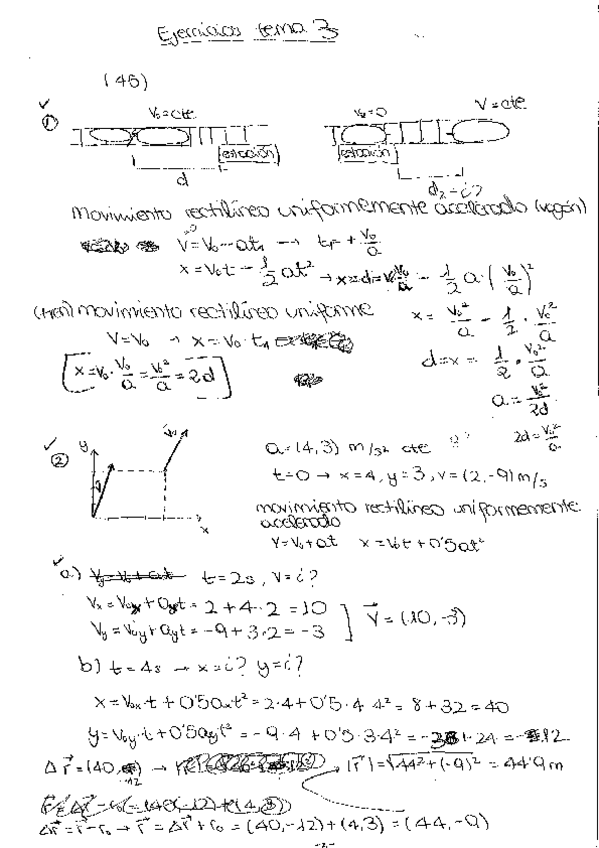 Ejercicios tema 3
(46)
① V₀=cte V₀=0 V=cte
estación estación
d d₂=¿?
movimiento rectilíneo uniformemente acelerado (vagón)
V=V₀-at₁ → t₁= + V₀/a
x=V₀t - 1/2 at² → x=d=V₀·V₀/a - 1/2 a·(V₀/a)²
(tren) movimiento rectilíneo uniforme x= V₀²/a - 1/2 · V₀²/a
V=V₀ → x=V₀·t₁ d=x= 1/2 · V₀²/a
[x=V₀·V₀/a = V₀²/a = 2d] a= V₀²/2d
2d=V₀²/a
② y x a=(4,3) m/s² cte
t=0 → x=4, y=3, v=(2,-9) m/s
movimiento rectilíneo uniformemente
acelerado
V=V₀+at x=V₀t+0'5at²
a) t=2s, v=¿?
Vx=V₀x+axt = 2+4·2 = 10
Vy=V₀y+ayt = -9+3·2 = -3 ] V⃗=(10,-3)
b) t=4s → x=¿? y=¿?
x=V₀x·t+0'5axt² = 2·4+0'5·4·4² = 8+32 = 40
y=V₀y·t+0'5ayt² = -9·4+0'5·3·4² = -36+24 = -12
Δr⃗=(40,-12) → |r⃗|=√44²+(-9)² = 44'9m
Δr⃗=r⃗-r₀ → r⃗=Δr⃗+r₀ = (40,-12)+(4,3) = (44,-9)
-1-